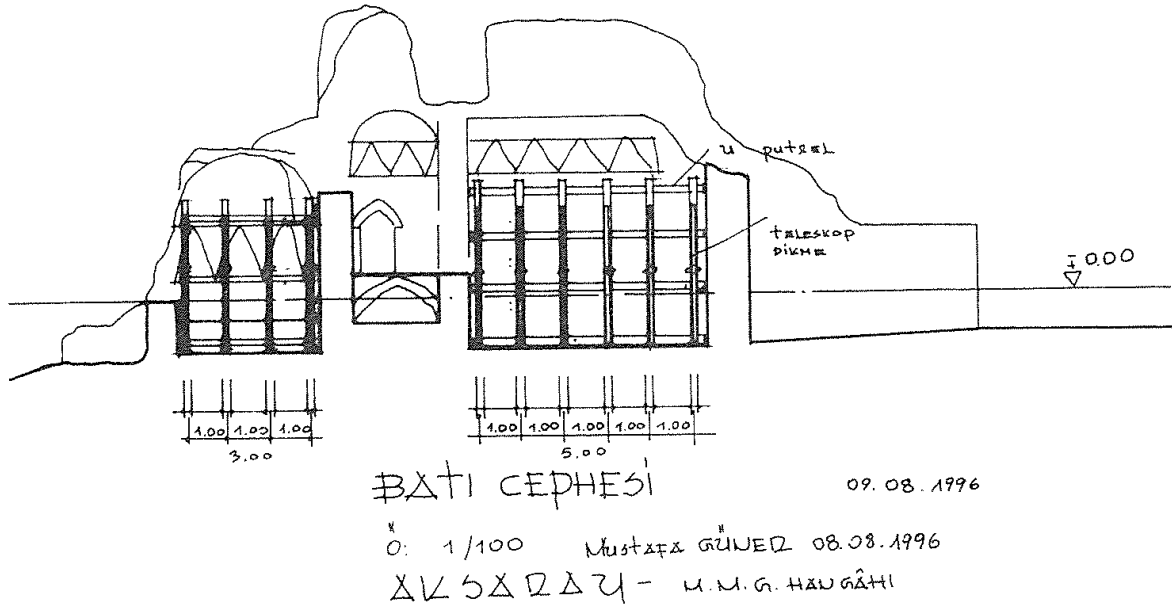 U putrel
teleskop
dikme
± 0.00
1.00 1.00 1.00
3.00
1.00 1.00 1.00 1.00 1.00
5.00
BATI CEPHESİ
09.08.1996
Ö: 1/100 Mustafa GÜNER 08.08.1996
AKSARAY - M.M.G. HANGÂHI